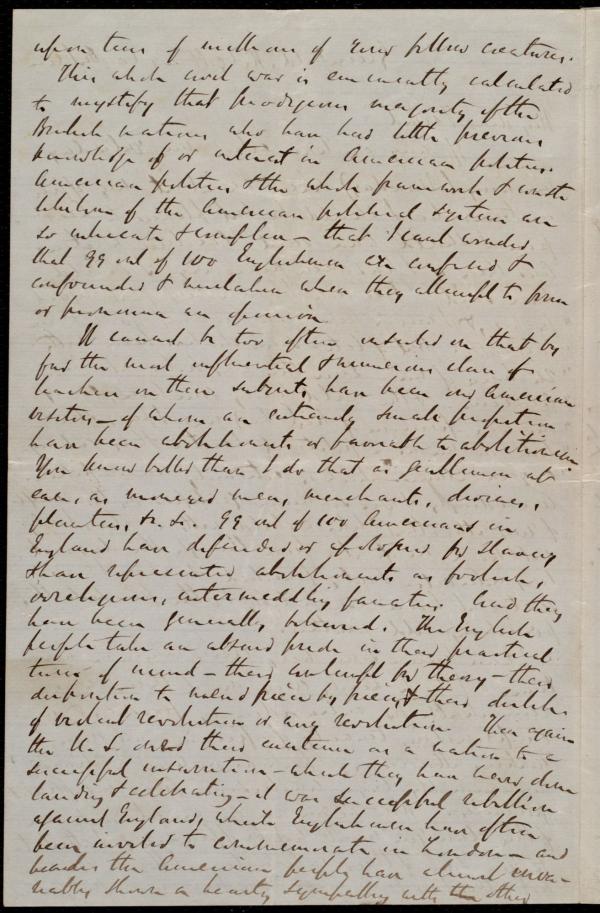 upon tens of millions of your fellow creatures.
This whole civil war is eminently calculated
to mystify that prodigious majority of the
British nations who have had little previous
knowledge of or interest in American politics.
American politics & the whole framework & consti-
tution of the American political system are
so intricate & complex - that I can't wonder
that 99 out of 100 Englishmen are confused &
confounded & mistaken when they attempt to form
or pronounce an opinion
It cannot be too often insisted on that by
far the most influential & numerous class of
teachers on these subjects have been our American
visitors - of whom an extremely small proportion
have been abolitionists or favorable to abolitionism
You know better than I do that as gentlemen at
ease, as moneyed men, merchants, divines,
planters, &c. &c. 99 out of 100 Americans in
England have defended or apologised for slavery
& have represented abolitionists as foolish,
irreligious, intermeddling fanatics. And they
have been generally believed. The English
people take an absurd pride in their practical
turn of mind - their contempt for theory - their
disposition to mend piece by piece & their dislike
of violent revolution or any revolution. Then again
the U.S. owed their existence as a nation to a
successful insurrection - which they have never done
lauding & celebrating - it was successful rebellion
against England, which Englishmen have often
been invited to commemorate in London - and
besides the American people have almost inva-
riably shown a hearty sympathy with the other